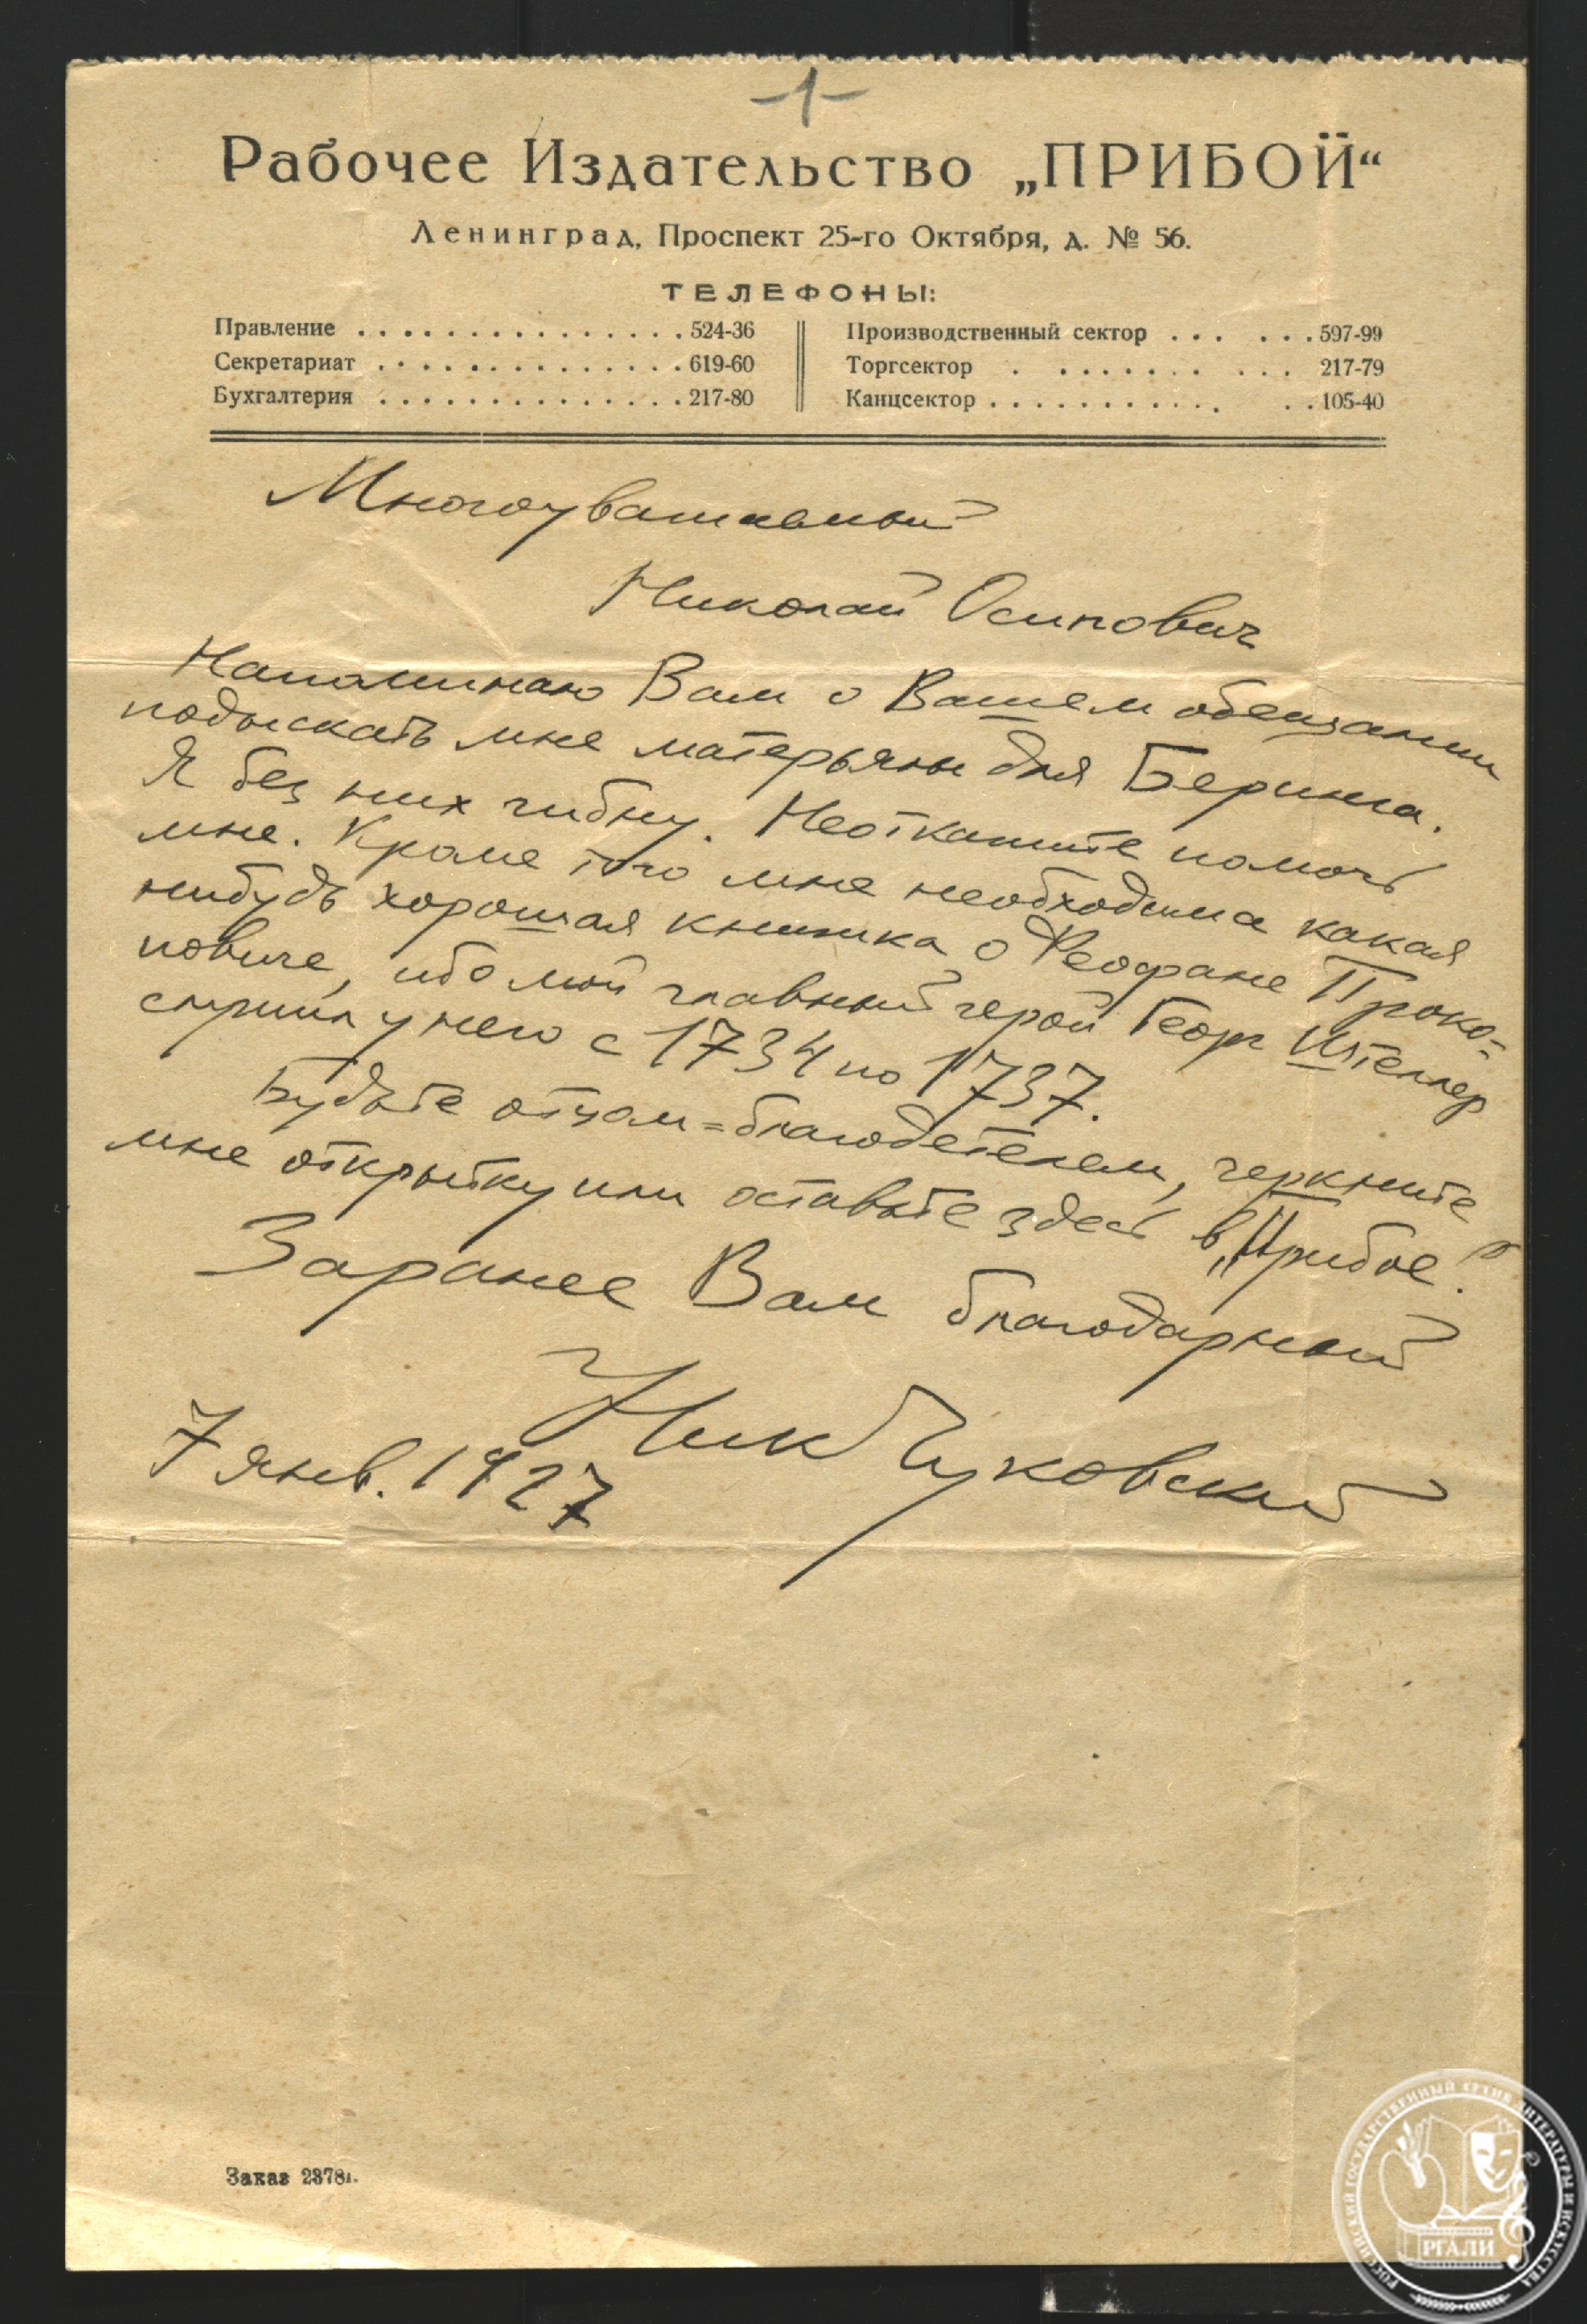 -1-
Рабочее Издательство „ПРИБОЙ“
Ленинград, Проспект 25-го Октября, д. № 56.
ТЕЛЕФОНЫ:
Правление . . . . . . . . . . . . . . . 524-36
Секретариат . . . . . . . . . . . . . . 619-60
Бухгалтерия . . . . . . . . . . . . . . 217-80
Производственный сектор . . . . . . 597-99
Торгсектор . . . . . . . . . . 217-79
Канцсектор . . . . . . . . . . . . . 105-40
Многоуважаемый
Николай Осипович
Напоминаю Вам о Вашем обещании
подыскать мне матерьялы для Беринга.
Я без них гибну. Неоткажите помочь
мне. Кроме того мне необходима какая
нибудь хорошая книжка о Феофане Проко=
повиче, ибо мой главный герой Георг Штеллер
служил у него с 1734 по 1737.
Будьте отцом=благодетелем, черкните
мне открытку или оставьте здесь в „Прибое“.
Заранее Вам благодарный
Ник Чуковский
7 янв. 1927
Заказ 2378г.
РОССИЙСКИЙ ГОСУДАРСТВЕННЫЙ АРХИВ ЛИТЕРАТУРЫ И ИСКУССТВА
РГАЛИ